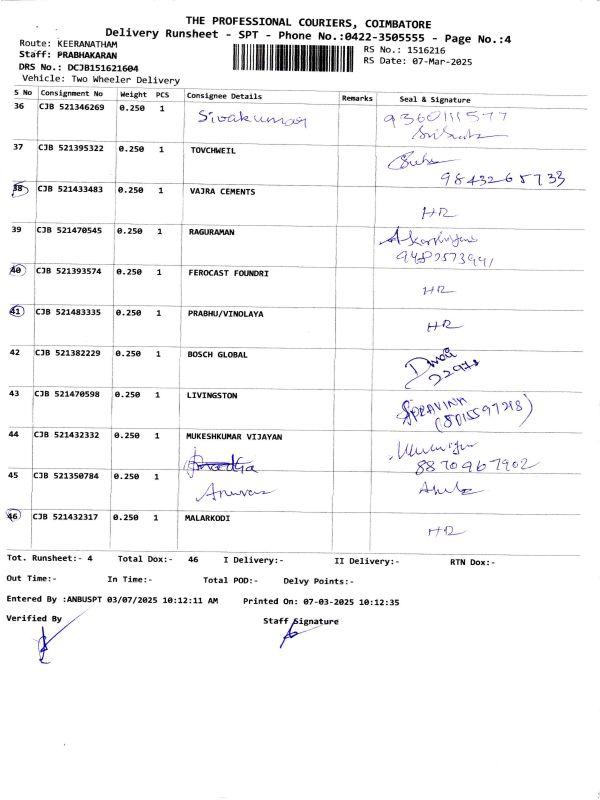 THE PROFESSIONAL COURIERS, COIMBATORE
Delivery Runsheet - SPT - Phone No.:0422-3505555 - Page No.:4
Route: KEERANATHAM
Staff: PRABHAKARAN
DRS No.: DCJB151621604
Vehicle: Two Wheeler Delivery
RS No.: 1516216
RS Date: 07-Mar-2025
S No Consignment No Weight PCS Consignee Details Remarks Seal & Signature
36 CJB 521346269 0.250 1 Sivakumar 9360111577
37 CJB 521395322 0.250 1 TOVCHWEIL
9843265733
38 CJB 521433483 0.250 1 VAJRA CEMENTS
HR
39 CJB 521470545 0.250 1 RAGURAMAN
40 CJB 521393574 0.250 1 FEROCAST FOUNDRI
HR
41 CJB 521483335 0.250 1 PRABHU/VINOLAYA
HR
42 CJB 521382229 0.250 1 BOSCH GLOBAL
43 CJB 521470598 0.250 1 LIVINGSTON
44 CJB 521432332 0.250 1 MUKESHKUMAR VIJAYAN
8870967902
45 CJB 521350784 0.250 1
46 CJB 521432317 0.250 1 MALARKODI
HR
Tot. Runsheet:- 4 Total Dox:- 46 I Delivery:- II Delivery:- RTN Dox:-
Out Time:- In Time:- Total POD:- Delvy Points:-
Entered By :ANBUSPT 03/07/2025 10:12:11 AM Printed On: 07-03-2025 10:12:35
Verified By Staff Signature